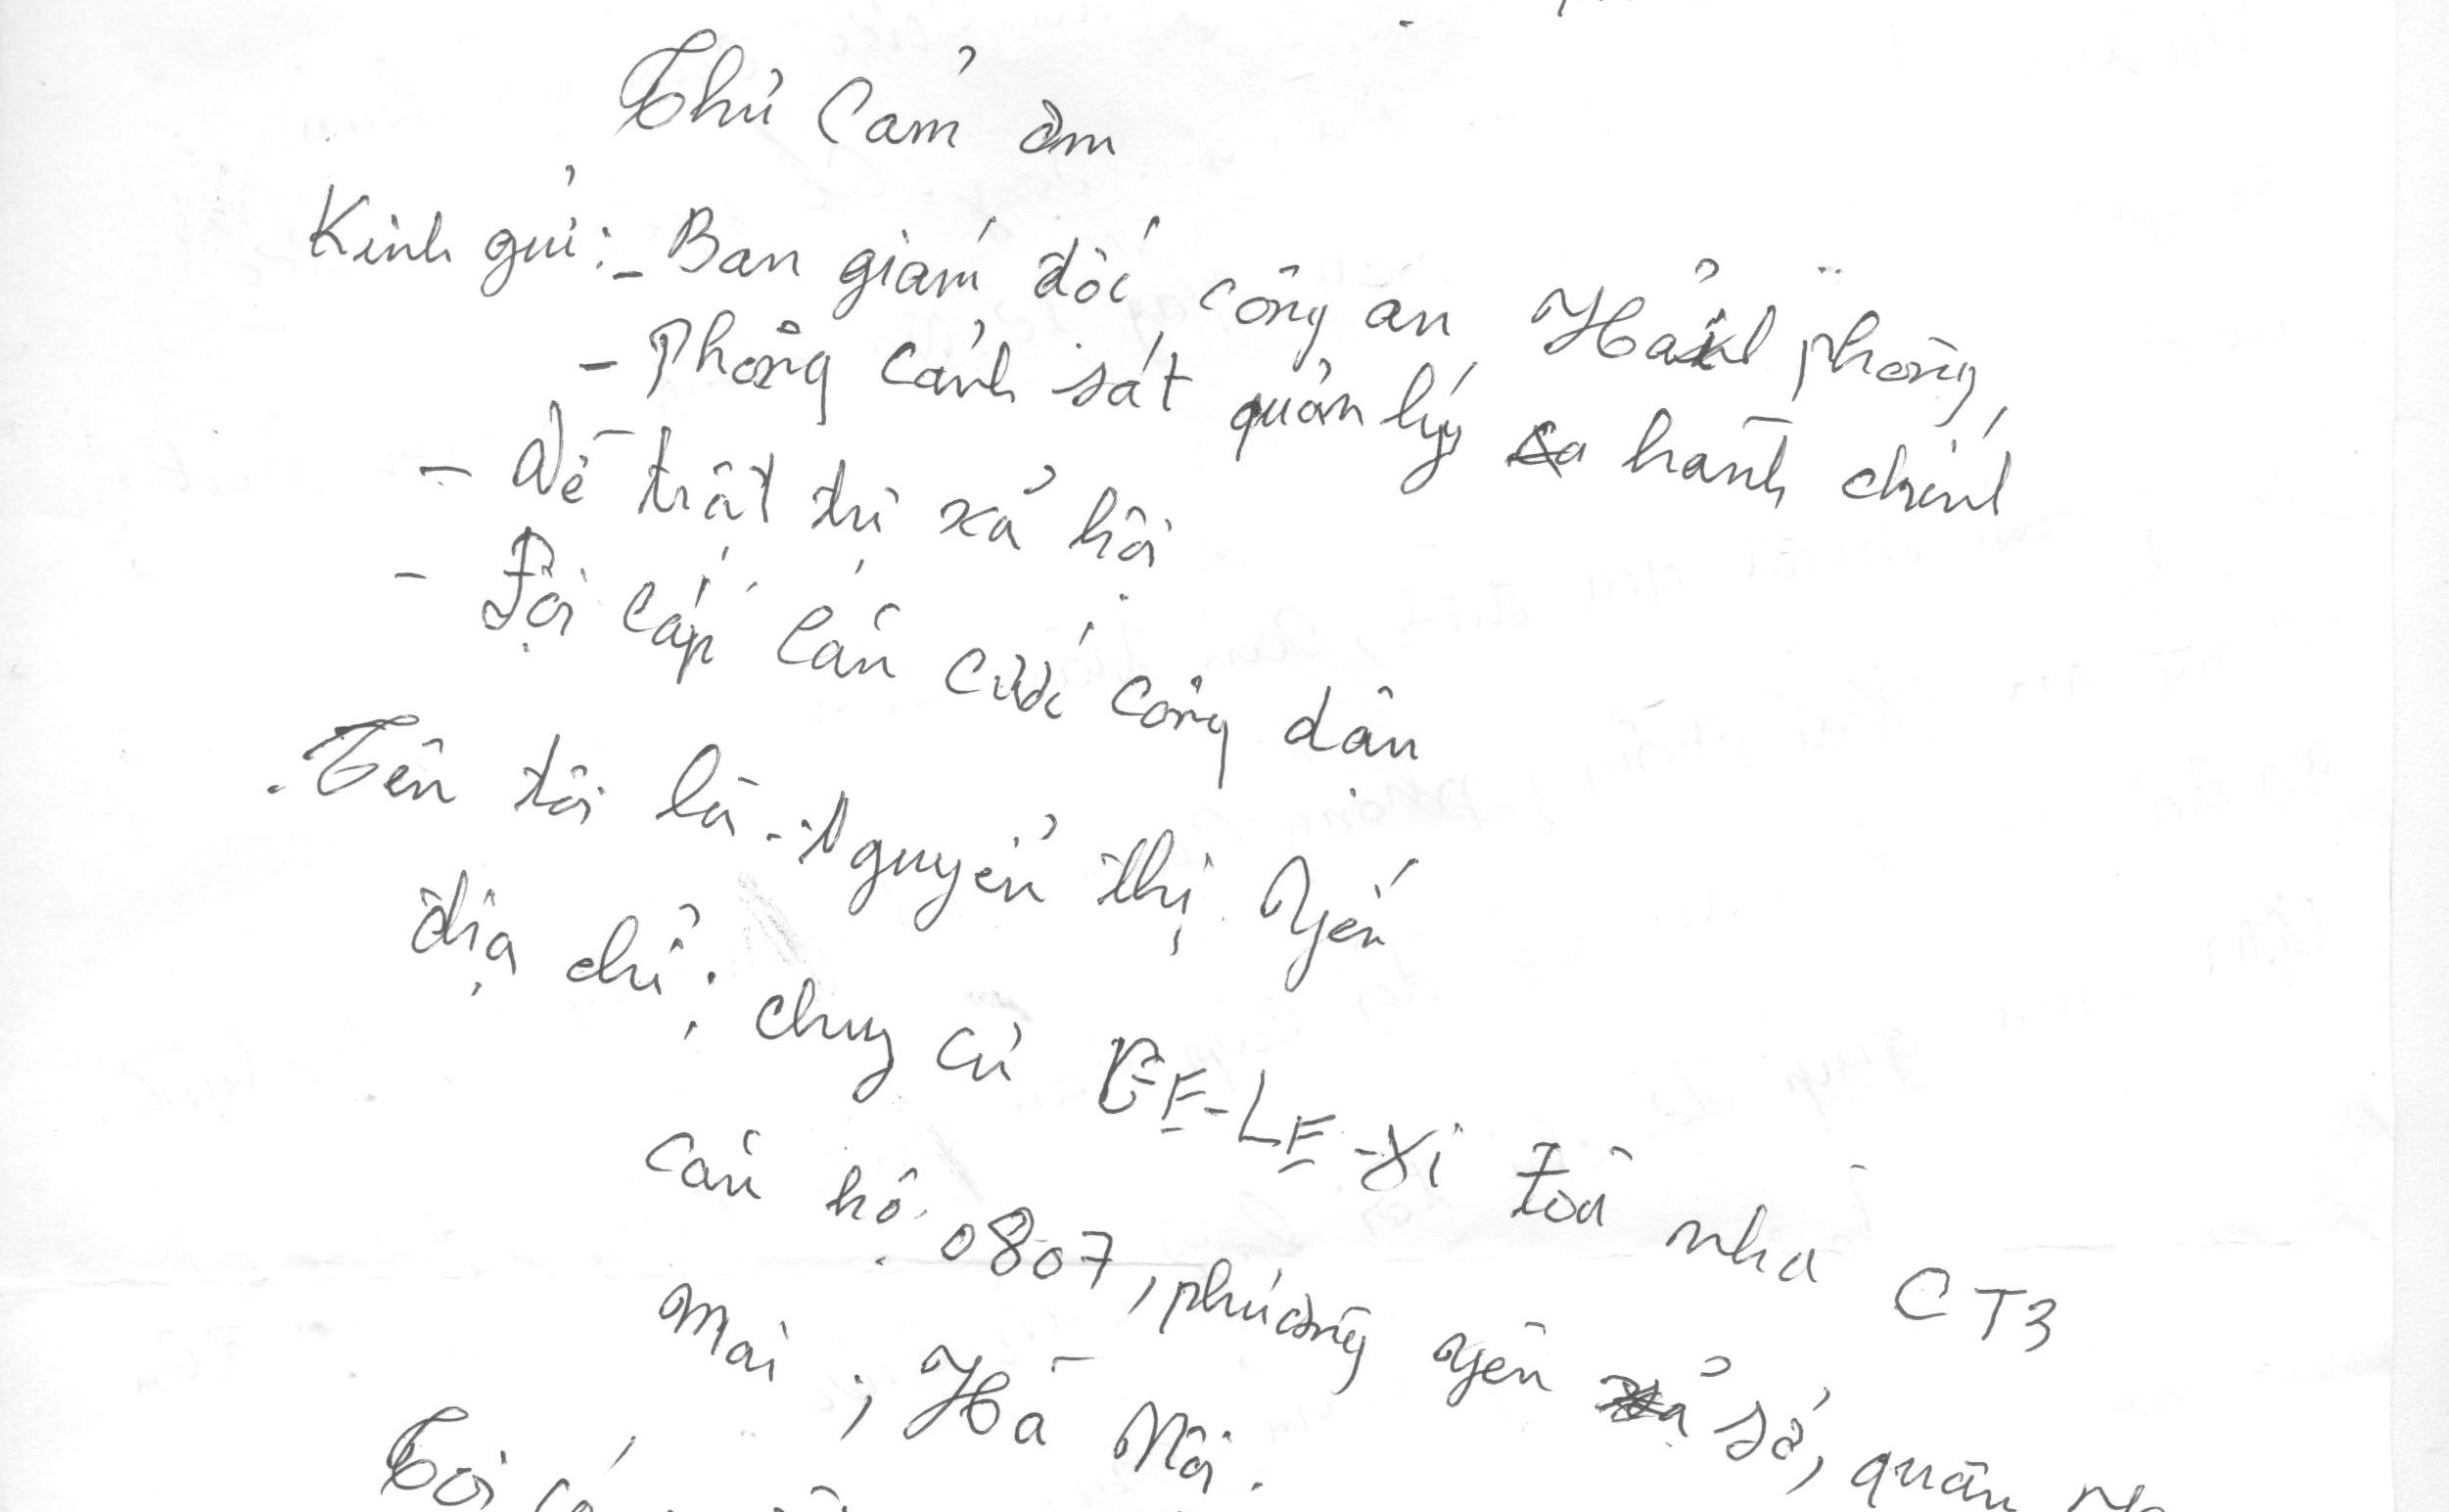 Thư Cảm ơn
Kính gửi: - Ban giám đốc công an Hải phòng,
- Phòng cảnh sát quản lý hành chính
- Về trật tự xã hội
- Đội cấp căn cước công dân
Tên tôi là - Nguyễn thị Yến
địa chỉ: chung cư GE-LE-XI toà nhà CT3
căn hộ 0807, phường yên sở, quận
Mai, Hà Nội.
Tôi có